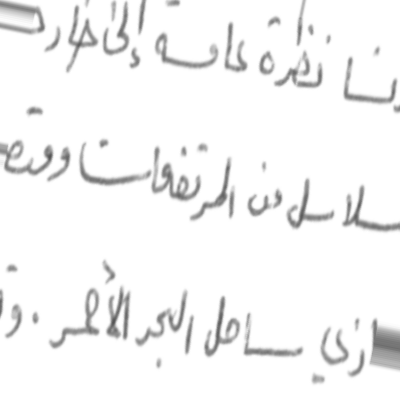 نظرة عامة إلى خار
سلاسل من المرتفعات و
ازي ساحل البحر الأحمر . و